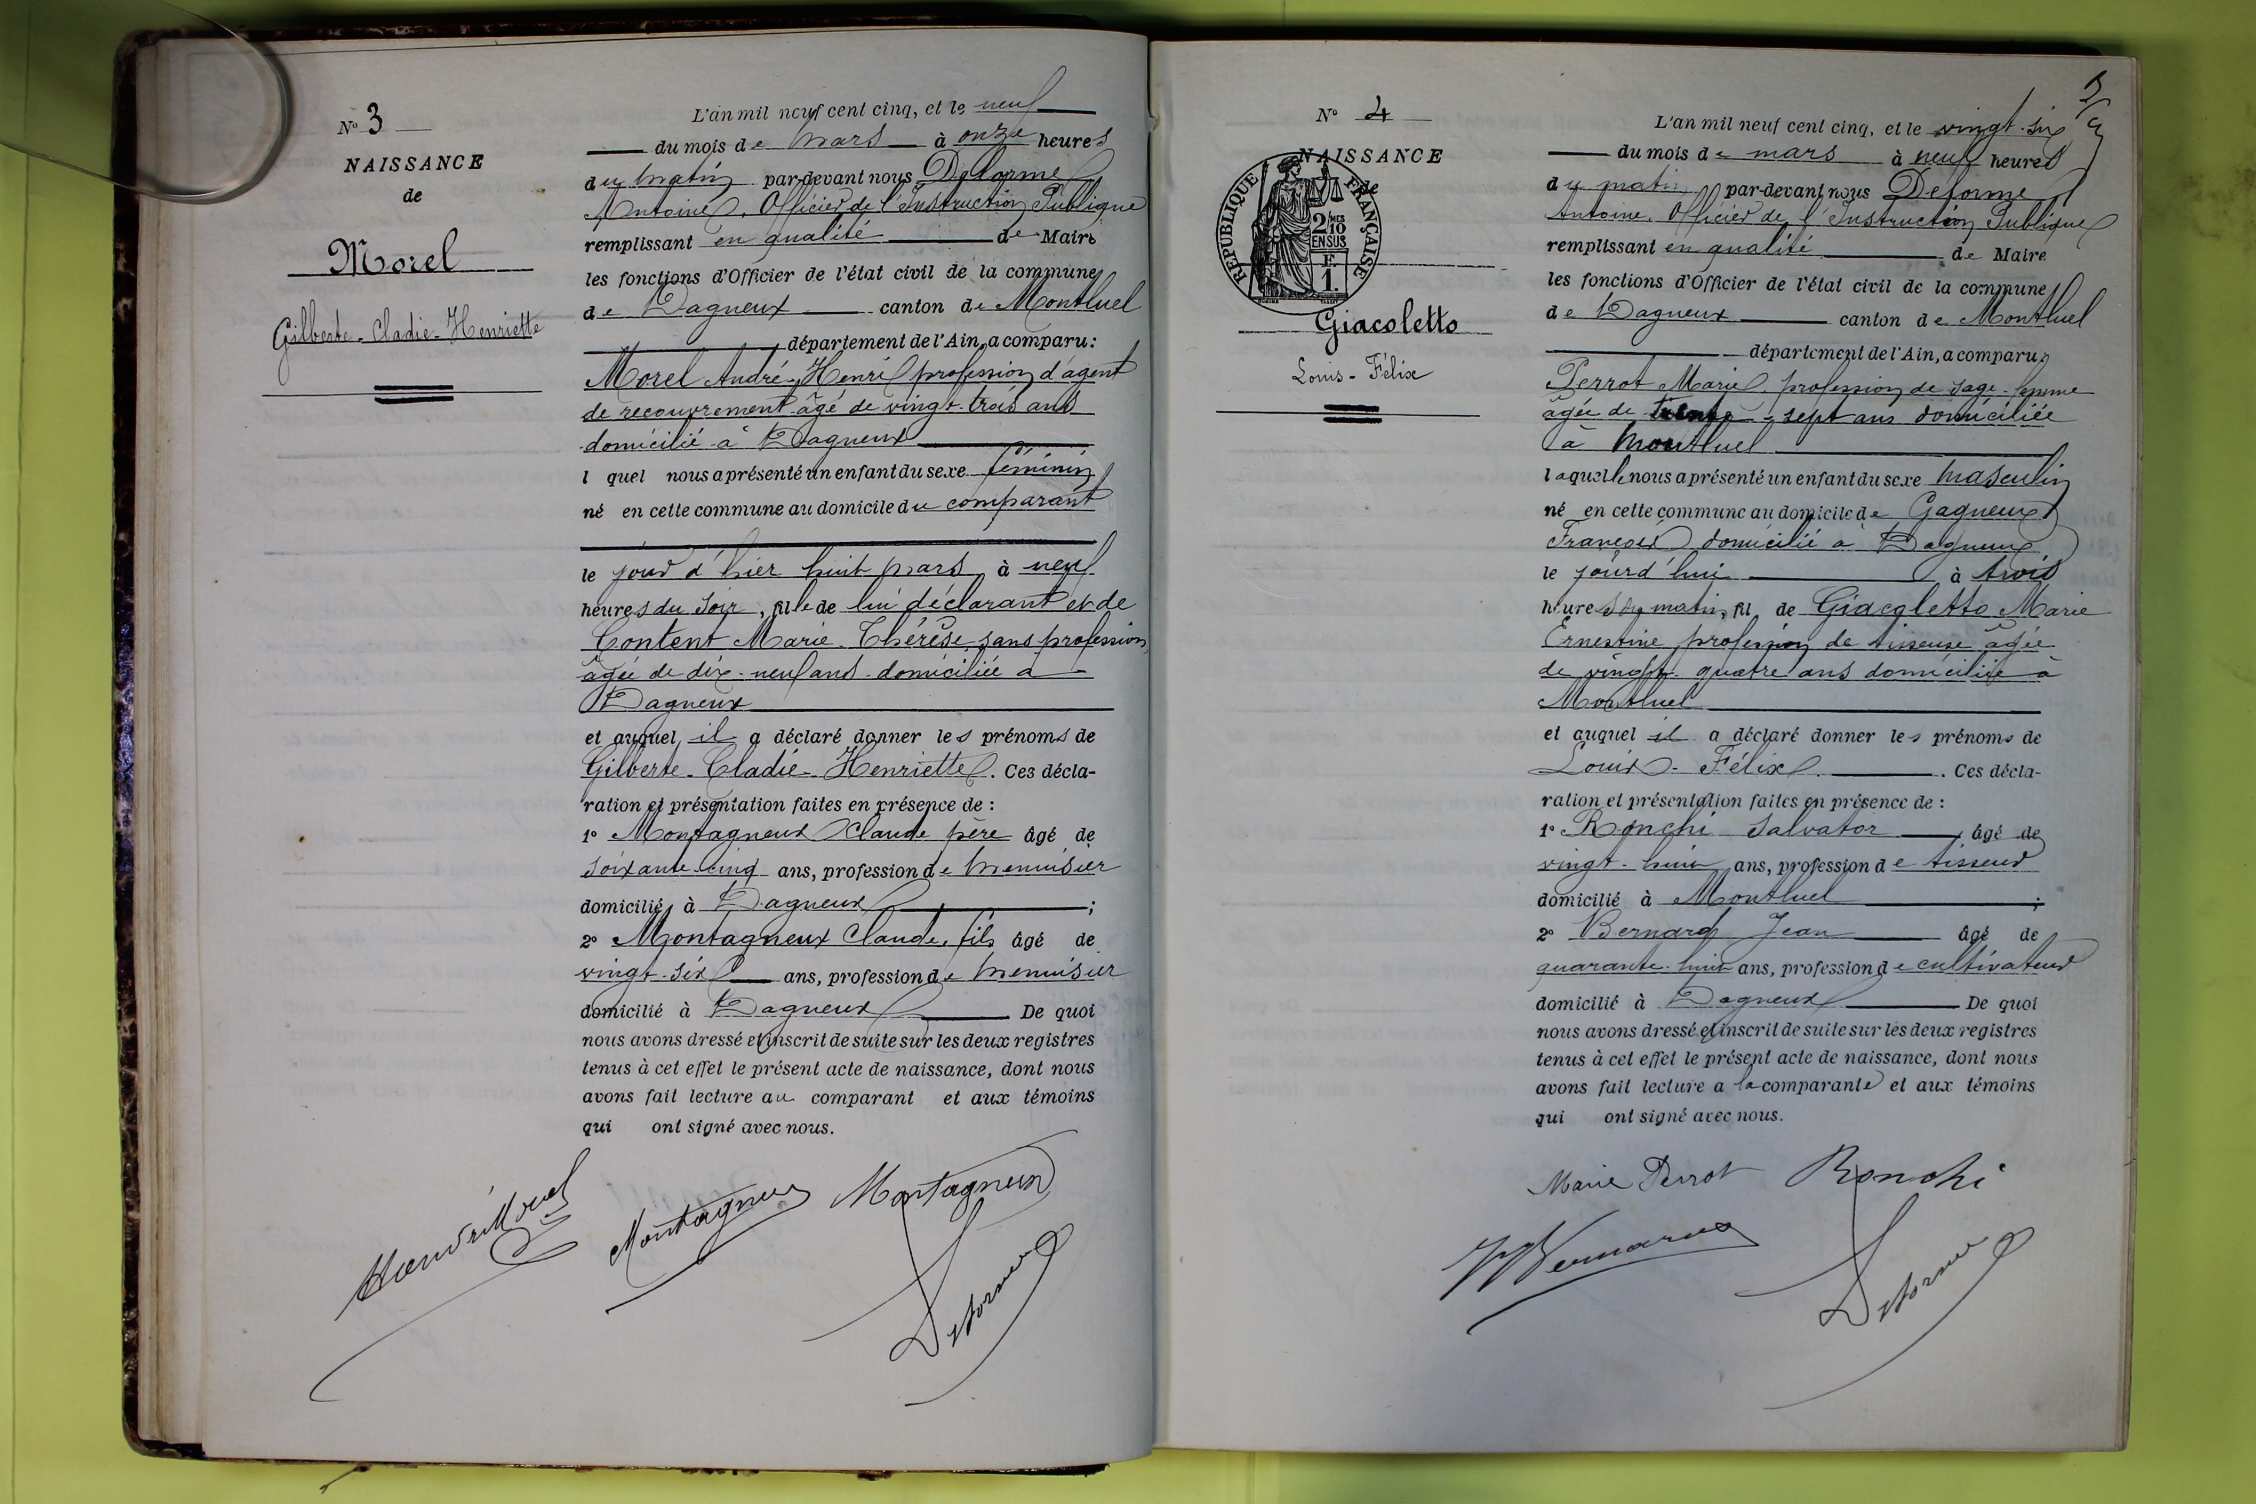 N° 3
NAISSANCE
de
Morel
Gilberte - Cladie - Henriette
L'an mil neuf cent cinq, et le neuf
du mois de Mars à onze heures
du matin par-devant nous Delorme
Antoine, Officier de l'Instruction Publique
remplissant en qualité de Maire
les fonctions d'Officier de l'état civil de la commune
de Dagneux canton de Montluel
département de l'Ain, a comparu :
Morel André-Henri profession d'agent
de recouvrement âgé de vingt-trois ans
domicilié à Dagneux
l quel nous a présenté un enfant du sexe féminin
né en cette commune au domicile du comparant
le jour d'hier huit mars à neuf
heures du soir, fille de lui déclarant et de
Content Marie Thérèse sans profession,
âgée de dix-neuf ans domiciliée a
Dagneux
et auquel il a déclaré donner les prénoms de
Gilberte - Cladie - Henriette. Ces décla-
ration et présentation faites en présence de :
1° Montagneux Claude père âgé de
soixante-cinq ans, profession de menuisier
domicilié à Dagneux ;
2° Montagneux Claude, fils âgé de
vingt-six ans, profession de menuisier
domicilié à Dagneux De quoi
nous avons dressé et inscrit de suite sur les deux registres
tenus à cet effet le présent acte de naissance, dont nous
avons fait lecture au comparant et aux témoins
qui ont signé avec nous.
Montagneux Montagneux
Delorme
N° 4
NAISSANCE
de
RÉPUBLIQUE FRANÇAISE
2/10 MES
EN SUS
F.
1.
Giacoletto
Louis - Félix
L'an mil neuf cent cinq, et le vingt-six
du mois de mars à neuf heures
du matin par-devant nous Delorme
Antoine, Officier de l'Instruction Publique
remplissant en qualité de Maire
les fonctions d'Officier de l'état civil de la commune
de Dagneux canton de Montluel
département de l'Ain, a comparu
Perrot Marie, profession de sage-femme
âgée de trente-sept ans domiciliée
à Montluel
laquelle nous a présenté un enfant du sexe masculin
né en cette commune au domicile de Gagneux
François domicilié à Dagneux
le jourd'hui à trois
heures du matin, fil de Giacoletto Marie
Ernestine profession de tisseuse âgée
de vingt-quatre ans domiciliée à
Montluel
et auquel il a déclaré donner les prénoms de
Louis - Félix. Ces décla-
ration et présentation faites en présence de :
1° Ronchi Salvator âgé de
vingt-huit ans, profession de tisseur
domicilié à Montluel ;
2° Bernard Jean âgé de
quarante-huit ans, profession de cultivateur
domicilié à Dagneux De quoi
nous avons dressé et inscrit de suite sur les deux registres
tenus à cet effet le présent acte de naissance, dont nous
avons fait lecture a la comparante et aux témoins
qui ont signé avec nous.
Marie Perrot Ronchi
Delorme